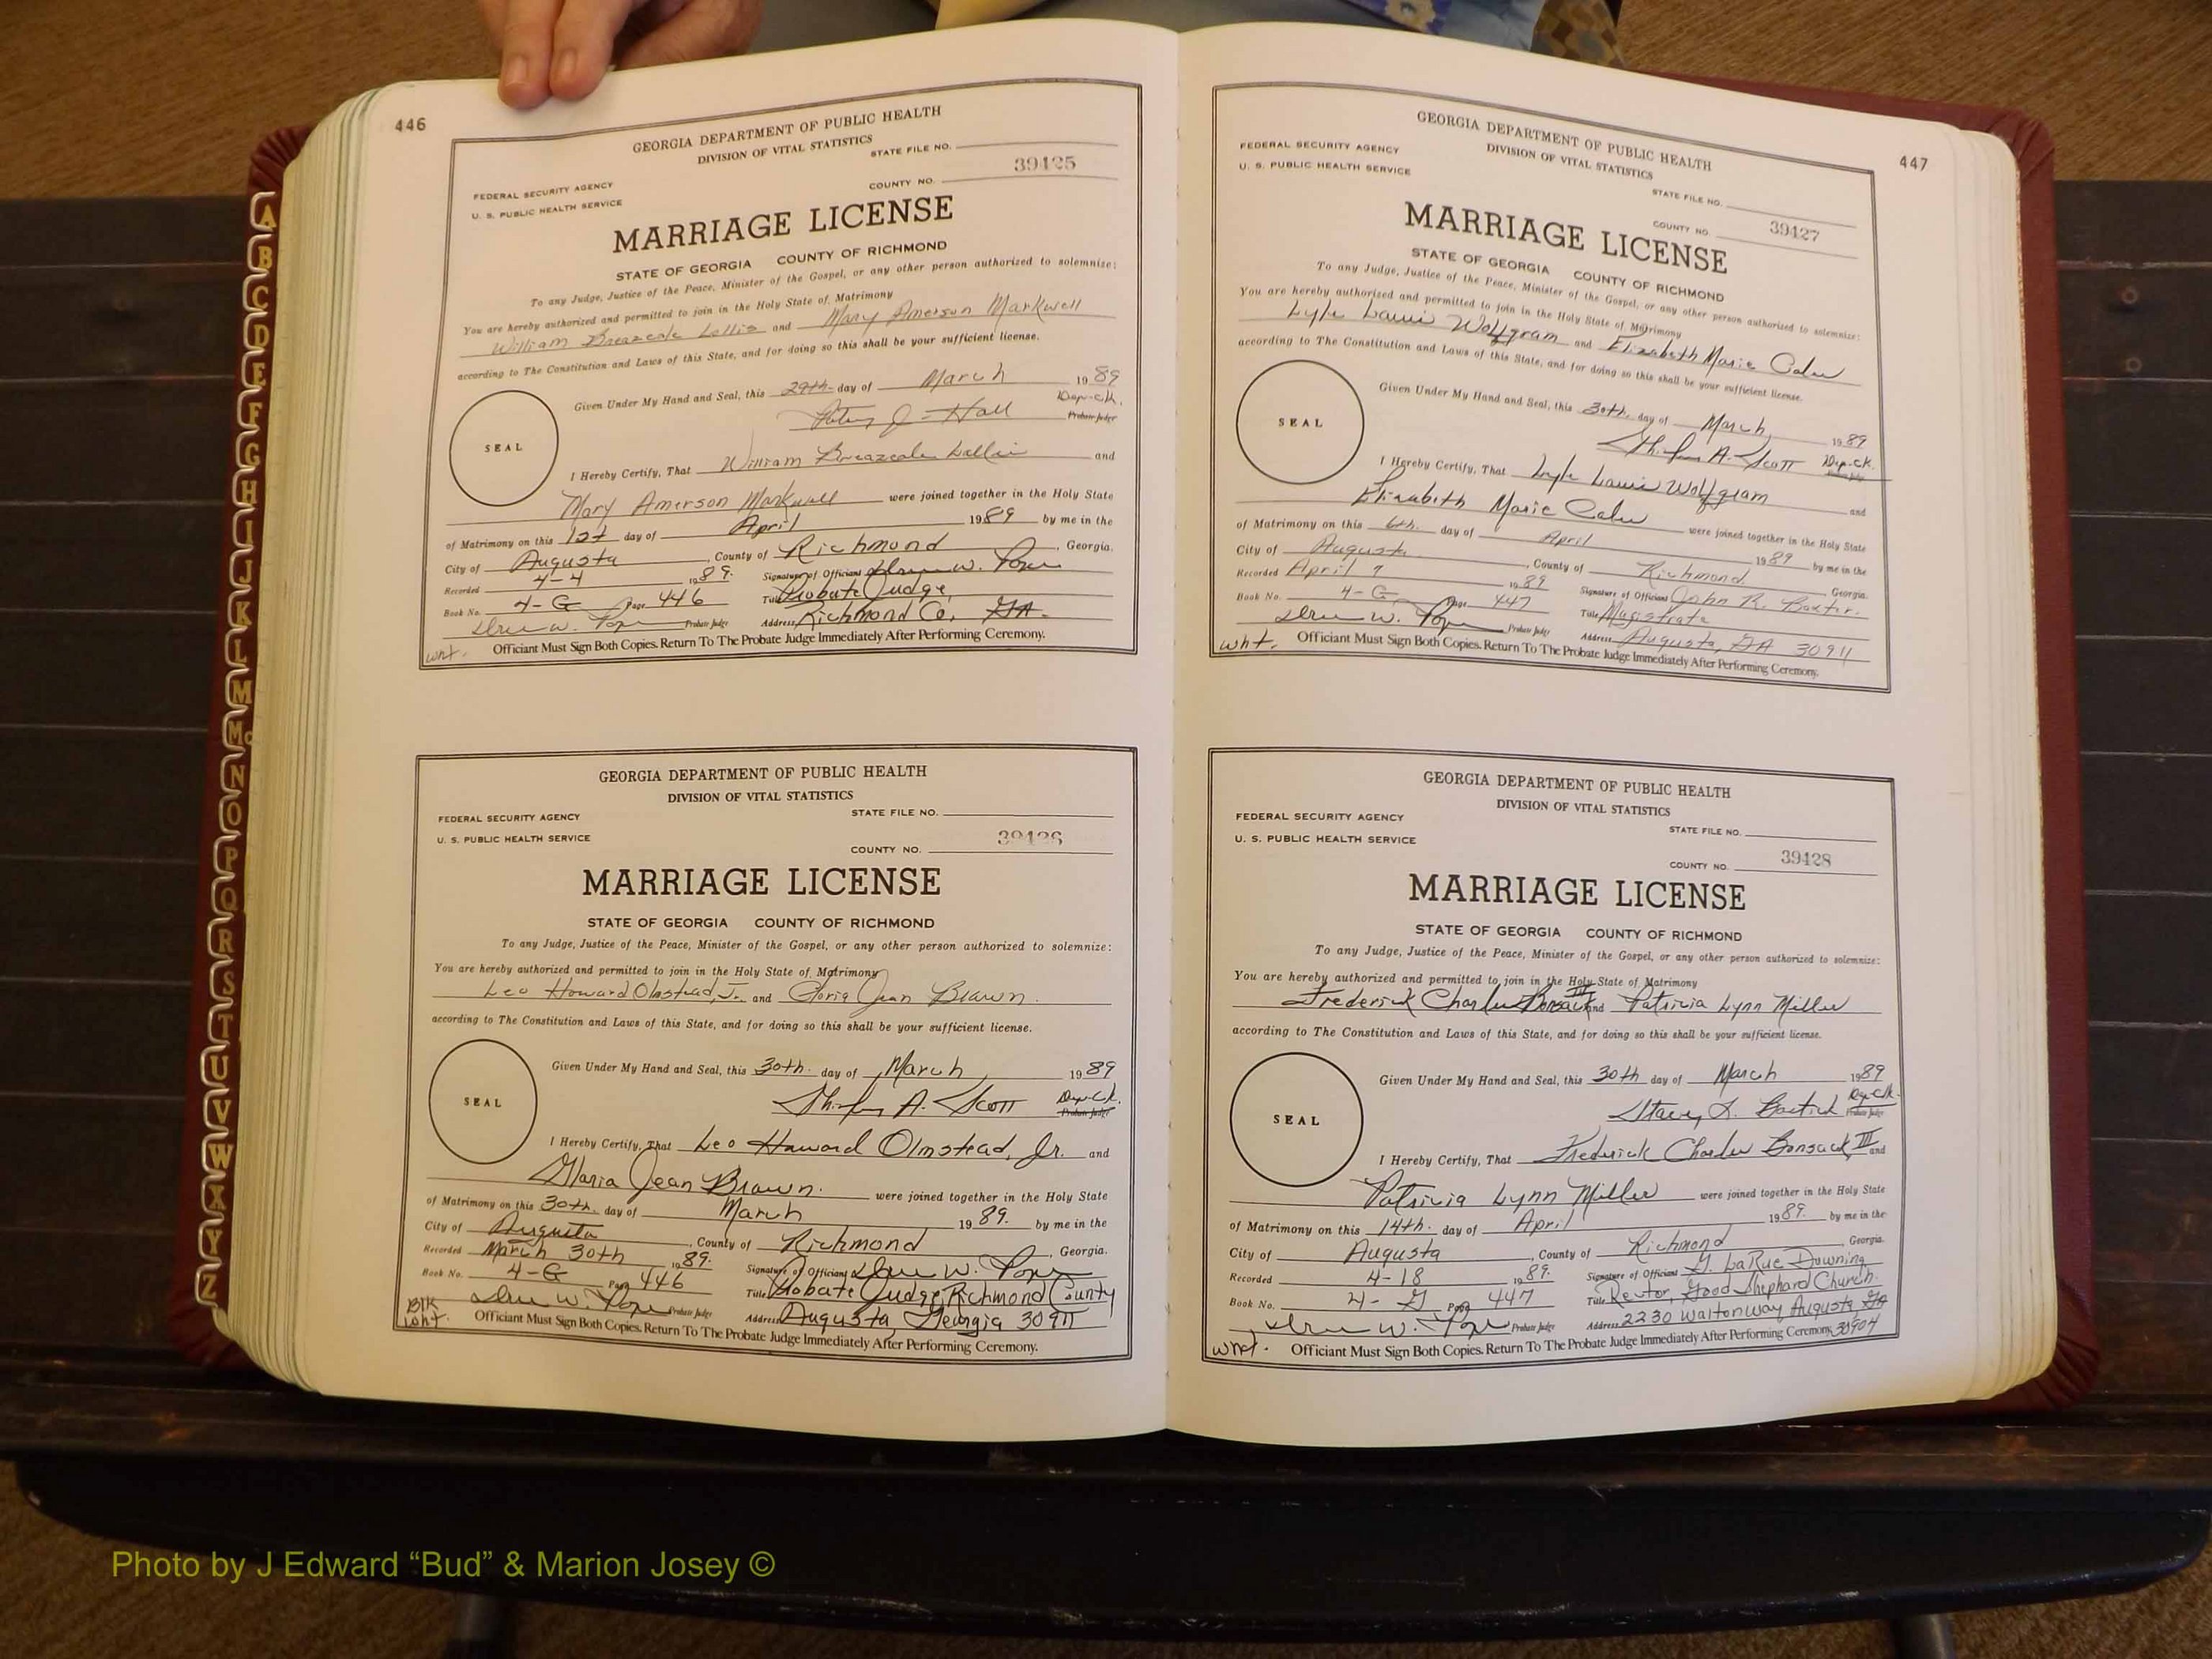 446
GEORGIA DEPARTMENT OF PUBLIC HEALTH
DIVISION OF VITAL STATISTICS
STATE FILE NO.
39425
FEDERAL SECURITY AGENCY
COUNTY NO.
U. S. PUBLIC HEALTH SERVICE
MARRIAGE LICENSE
STATE OF GEORGIA COUNTY OF RICHMOND
To any Judge, Justice of the Peace, Minister of the Gospel, or any other person authorized to solemnize:
You are hereby authorized and permitted to join in the Holy State of Matrimony
William Breazeale and Mary Amerson Markwell
according to The Constitution and Laws of this State, and for doing so this shall be your sufficient license.
Given Under My Hand and Seal, this 29th day of March 1989
J. Hall Dep-Clk.
Probate Judge
SEAL
I Hereby Certify, That William Breazeale and
Mary Amerson Markwell were joined together in the Holy State
of Matrimony on this 1st day of April 1989 by me in the
City of Augusta, County of Richmond, Georgia.
Recorded 4-4 1989. Signature of Officiant W. Pope
Book No. 4-G Page 446 Title Probate Judge,
W. Pope Probate Judge Address Richmond Co., GA.
wht. Officiant Must Sign Both Copies. Return To The Probate Judge Immediately After Performing Ceremony.
GEORGIA DEPARTMENT OF PUBLIC HEALTH
DIVISION OF VITAL STATISTICS
FEDERAL SECURITY AGENCY
STATE FILE NO.
U. S. PUBLIC HEALTH SERVICE
39426
COUNTY NO.
MARRIAGE LICENSE
STATE OF GEORGIA COUNTY OF RICHMOND
To any Judge, Justice of the Peace, Minister of the Gospel, or any other person authorized to solemnize:
You are hereby authorized and permitted to join in the Holy State of Matrimony
Leo Howard Olmstead, Jr. and Gloria Jean Brown.
according to The Constitution and Laws of this State, and for doing so this shall be your sufficient license.
Given Under My Hand and Seal, this 30th. day of March 1989
A. Scott Dep-Clk.
Probate Judge
SEAL
I Hereby Certify, That Leo Howard Olmstead, Jr. and
Gloria Jean Brown. were joined together in the Holy State
of Matrimony on this 30th. day of March 1989. by me in the
City of Augusta, County of Richmond, Georgia.
Recorded March 30th 1989. Signature of Officiant W. Pope
Book No. 4-G Page 446 Title Probate Judge, Richmond County
W. Pope Probate Judge Address Augusta Georgia 30911
Blk
wht. Officiant Must Sign Both Copies. Return To The Probate Judge Immediately After Performing Ceremony.
447
GEORGIA DEPARTMENT OF PUBLIC HEALTH
FEDERAL SECURITY AGENCY
DIVISION OF VITAL STATISTICS
U. S. PUBLIC HEALTH SERVICE
STATE FILE NO.
COUNTY NO. 39427
MARRIAGE LICENSE
STATE OF GEORGIA COUNTY OF RICHMOND
To any Judge, Justice of the Peace, Minister of the Gospel, or any other person authorized to solemnize:
You are hereby authorized and permitted to join in the Holy State of Matrimony
Lyle Louis Wolfgram and Elizabeth Marie
according to The Constitution and Laws of this State, and for doing so this shall be your sufficient license.
Given Under My Hand and Seal, this 30th. day of March 1989
A. Scott Dep-Clk.
SEAL
I Hereby Certify, That Lyle Louis Wolfgram and
Elizabeth Marie were joined together in the Holy State
of Matrimony on this 6th. day of April 1989 by me in the
City of Augusta, County of Richmond, Georgia.
Recorded April 7 1989 Signature of Officiant John R. Baxter.
Book No. 4-G Page 447 Title Magistrate
W. Pope Probate Judge Address Augusta, GA 30911
wht. Officiant Must Sign Both Copies. Return To The Probate Judge Immediately After Performing Ceremony.
GEORGIA DEPARTMENT OF PUBLIC HEALTH
DIVISION OF VITAL STATISTICS
FEDERAL SECURITY AGENCY
STATE FILE NO.
U. S. PUBLIC HEALTH SERVICE
COUNTY NO. 39428
MARRIAGE LICENSE
STATE OF GEORGIA COUNTY OF RICHMOND
To any Judge, Justice of the Peace, Minister of the Gospel, or any other person authorized to solemnize:
You are hereby authorized and permitted to join in the Holy State of Matrimony
Frederick Charles Bonsack III and Patricia Lynn Miller
according to The Constitution and Laws of this State, and for doing so this shall be your sufficient license.
Given Under My Hand and Seal, this 30th day of March 1989
Stacey L. Dep-Clk.
Probate Judge
SEAL
I Hereby Certify, That Frederick Charles Bonsack III and
Patricia Lynn Miller were joined together in the Holy State
of Matrimony on this 14th. day of April 1989. by me in the
City of Augusta, County of Richmond Georgia.
Recorded 4-18 1989. Signature of Officiant G. LaRue Downing
Book No. 4-G Page 447 Title Rector, Good Shephard Church.
W. Pope Probate Judge Address 2230 Walton Way Augusta, GA
wht. Officiant Must Sign Both Copies. Return To The Probate Judge Immediately After Performing Ceremony. 30904
A
B
C
D
E
F
G
H
I
J
K
L
M
Mc
N
O
P
Q
R
S
T
U
V
W
X
Y
Z
Photo by J Edward “Bud” & Marion Josey ©